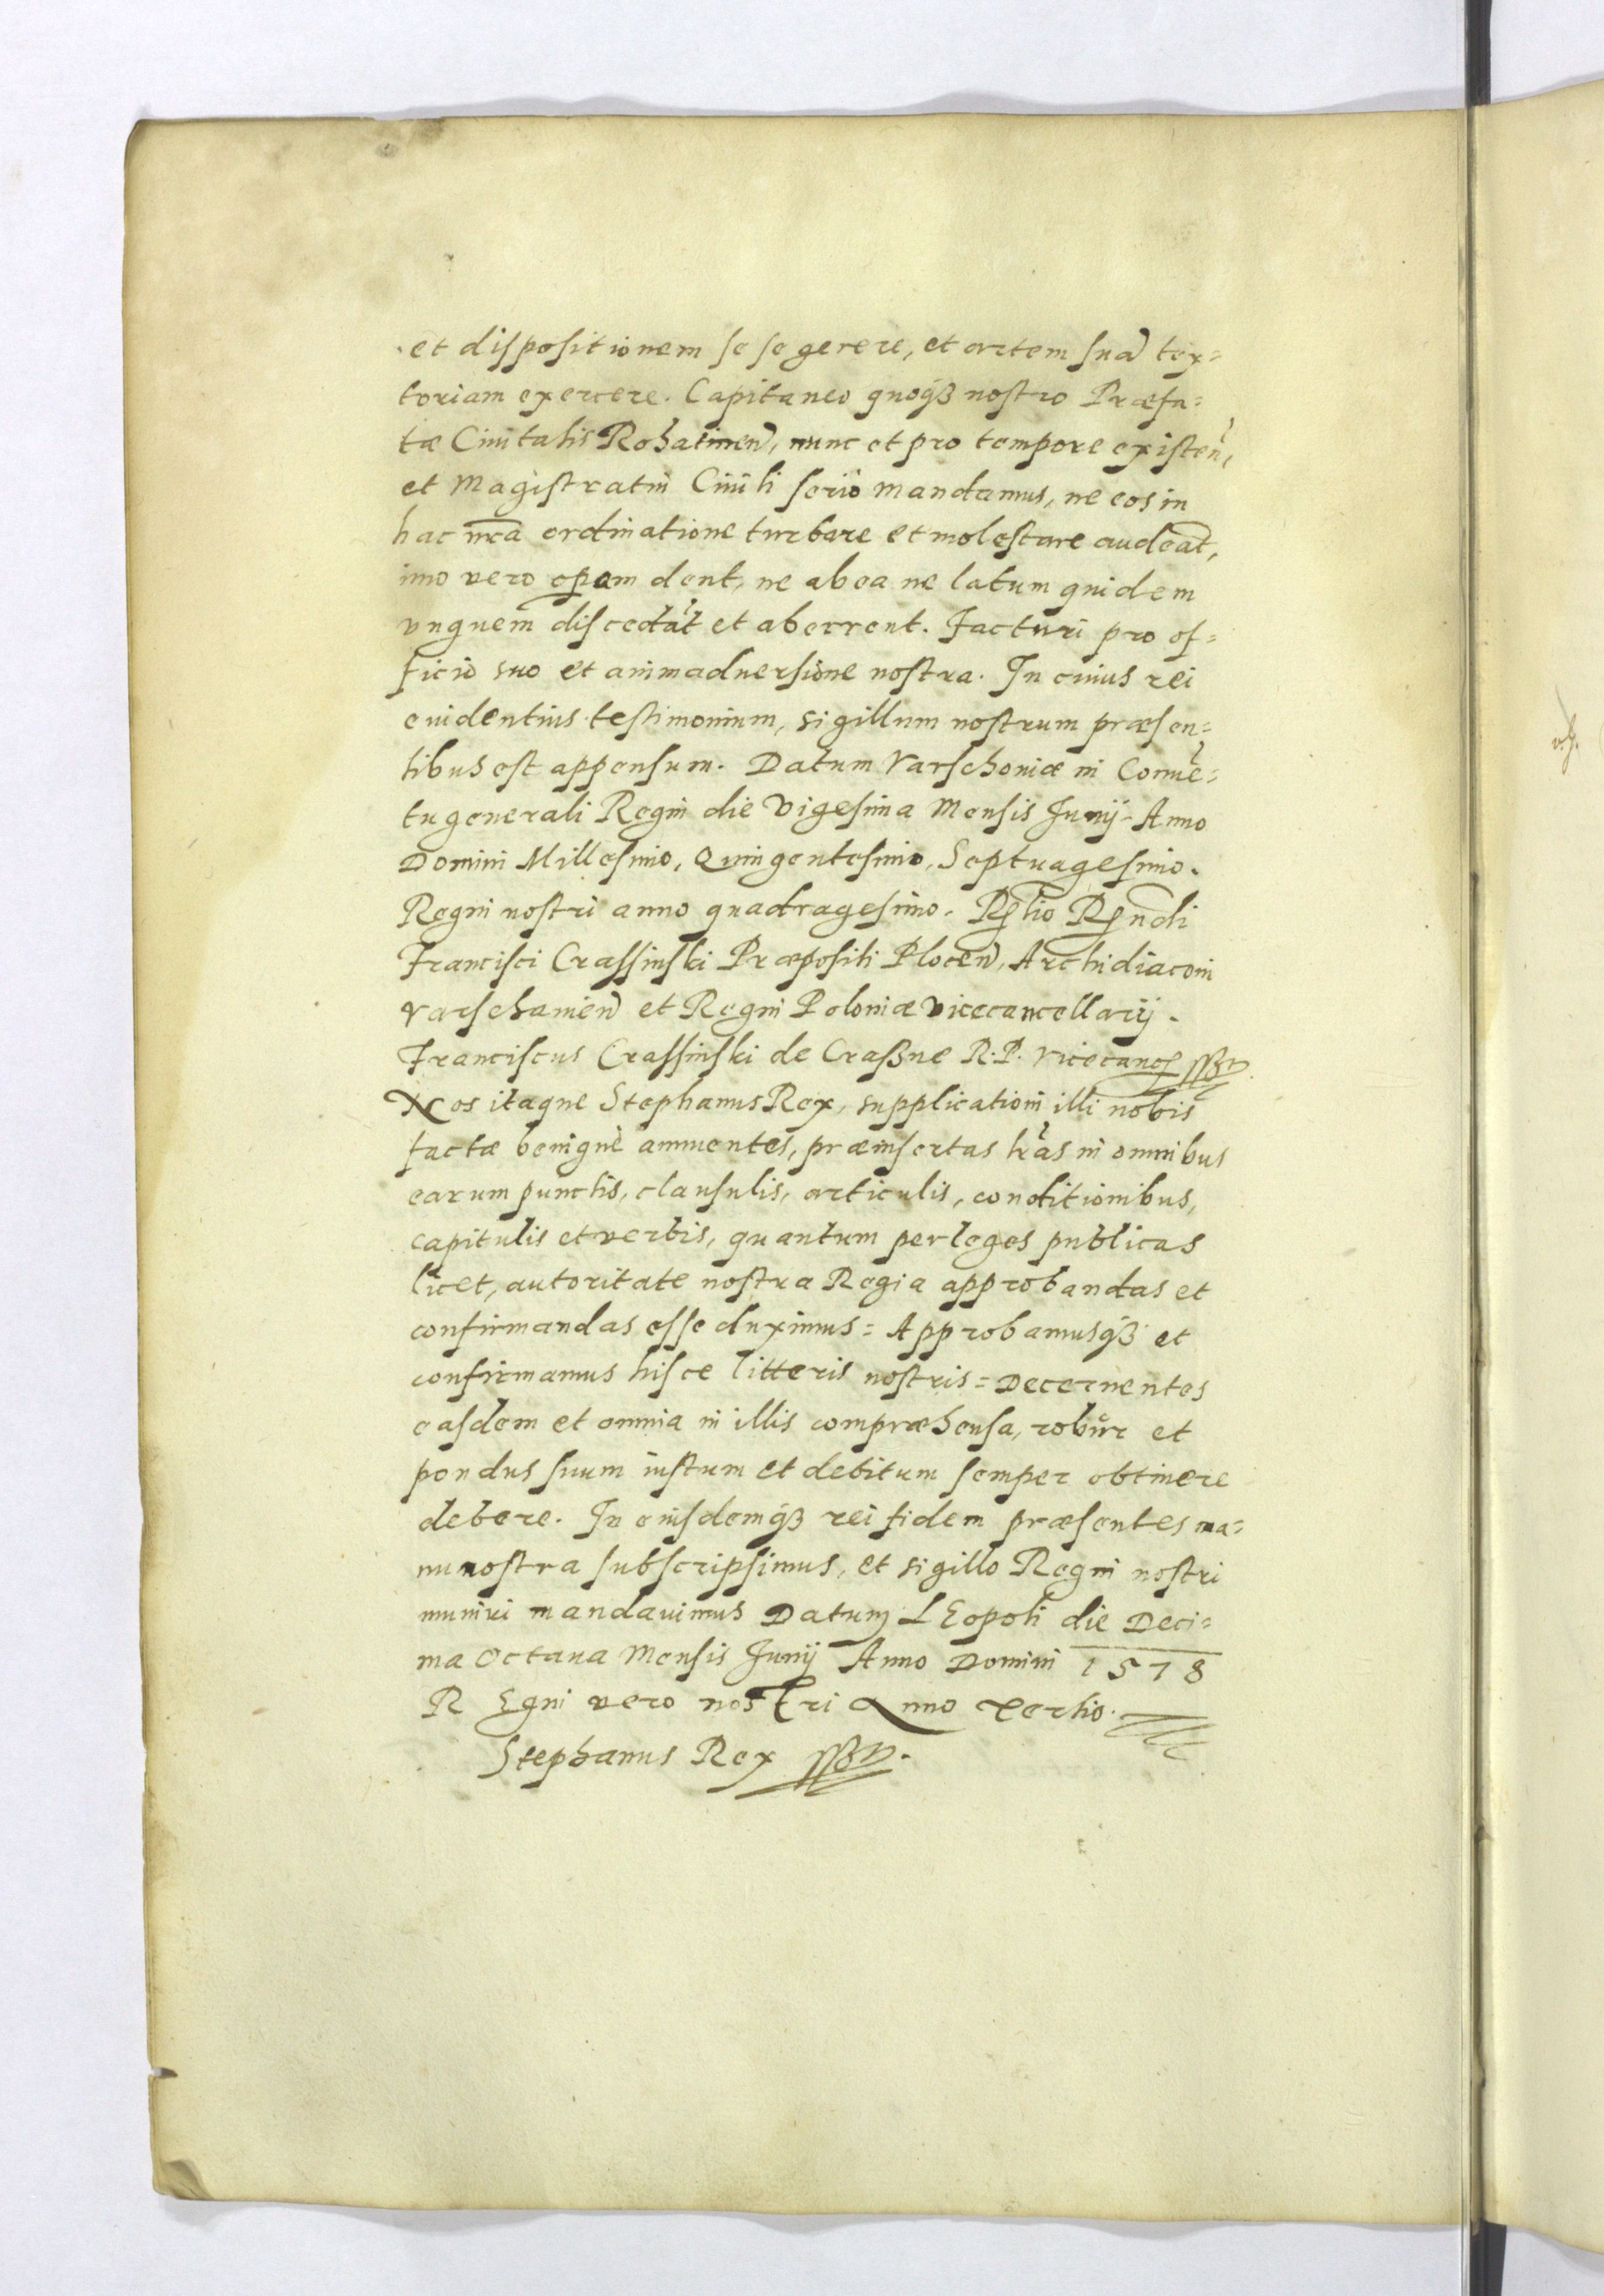 et dispositionem se se gerere, et artem suã tex=
toriam exercere. Capitaneo quoqꝫ nostro Præfa=
tæ Ciuitatis Rohatinen̄, nunc et pro tempore existen̄,
et Magistratui Ciuili serio mandamus, ne eos in
hac nr̃a ordinatione turbare et molestare audeãt,
imo vero operam dent, ne ab ea ne latum quidem
vnguem discedãt et aberrent. Facturi pro of=
ficio suo et animaduersione nostra. In cuius rei
euidentius testimonium, sigillum nostrum præsen=
tibus est appensum. Datum Varschouiæ in Conuẽ=
tu generali Regni die Vigesima Mensis Junij Anno
Domini Millesimo, Quingentesimo, Septuagesimo.
Regni nostri anno quadragesimo. Rꝑtio Rꝑndi
Francisci Crassinski Præpositi Plocen̄, Archidiaconi
Varschauien̄ et Regni Poloniæ Vicecancellarij.
Franciscus Crassinski de Craßne R. P. Vicecanc̃
Nos itaque Stephanus Rex, supplicationi illi nobis
factæ benignè annuentes, præinsertas lr̃as in omnibus
earum punctis, clausulis, articulis, conditionibus,
capitulis et verbis, quantum per leges publicas
licet, autoritate nostra Regia approbandas et
confirmandas esse duximus = Approbamusqꝫ et
confirmamus hisce litteris nostris = Decernentes
easdem et omnia in illis compræhensa, robur et
pondus suum iustum et debitum semper obtinere
debere. In eiusdemqꝫ rei fidem præsentes ma=
nu nostra subscripsimus, et sigillo Regni nostri
muniri mandauimus Datum LEopoli die Deci=
ma Octaua Mensis Junij Anno Domini 1578
REgni vero nostri Anno Tertio.
Stephanus Rex